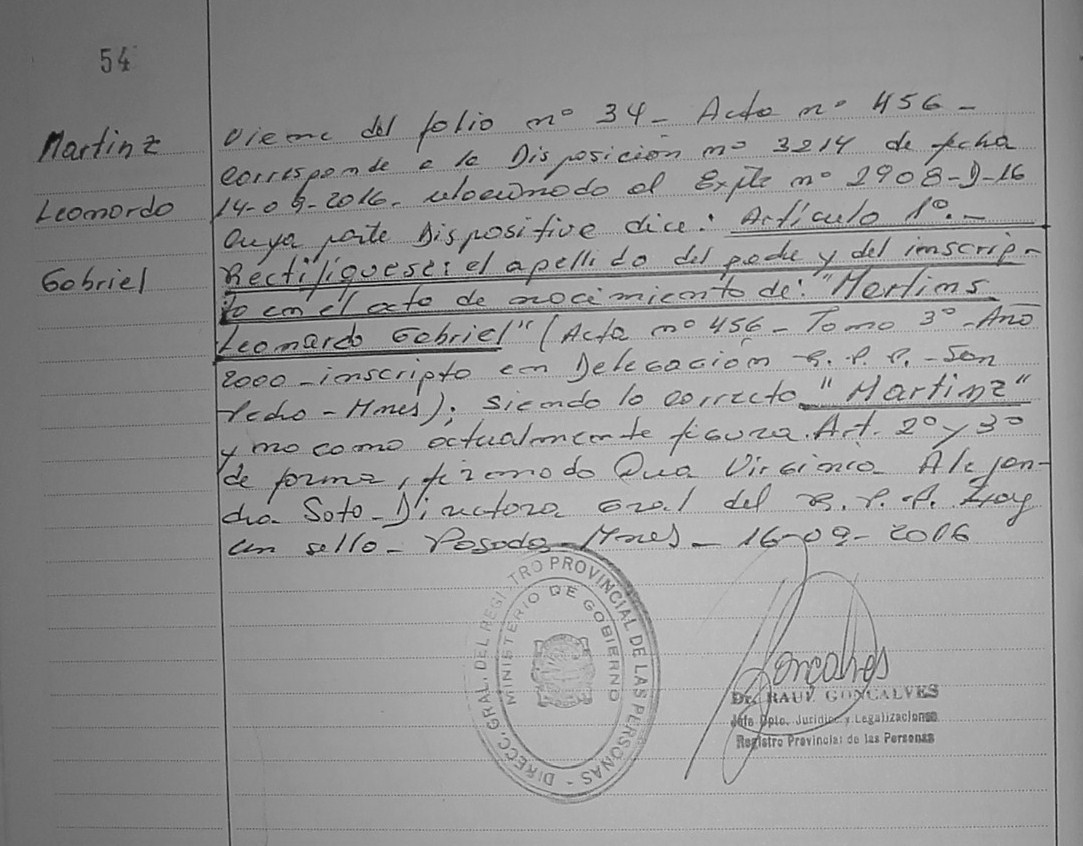 54
Martinz
Leonardo
Gabriel
Viene del folio nº 34 - Acta nº 456 -
corresponde a la Disposición nº 3214 de fecha
14-09-2016. relacionado al Expte nº 2908-D-16
Cuya parte Dispositiva dice: Artículo 1º.-
Rectifíquese: el apellido del padre y del inscrip-
to en el acta de nacimiento de: "Martins
Leonardo Gabriel" (Acta nº 456 - Tomo 3º - Año
2000 - inscripto en Delegación R. P. P. - San
Pedro - Mnes); siendo lo correcto "Martinz"
y no como actualmente figura. Art. 2º y 3º
de forma, firmado Dra Virginia Alejan-
dra Soto - Directora Gral del R. P. P. Hay
un sello - Posadas - Mnes - 16-09-2016
DIRECC. GRAL. DEL REGISTRO PROVINCIAL DE LAS PERSONAS
MINISTERIO DE GOBIERNO
Gonçalves
Dr. RAUL GONCALVES
Jefe Dpto. Jurídico y Legalizaciones
Registro Provincial de las Personas